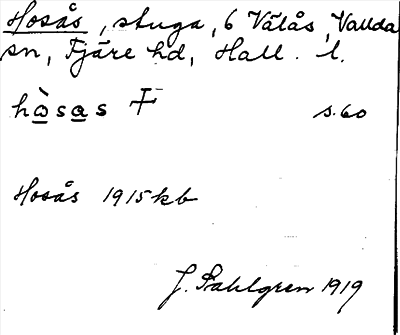 Hosås, stuga, 6 Välås, Vallda
sn, Fjäre hd, Hall. l.
hòsas F s. 60
Hosås 1915 kb
J. Sahlgren 1919